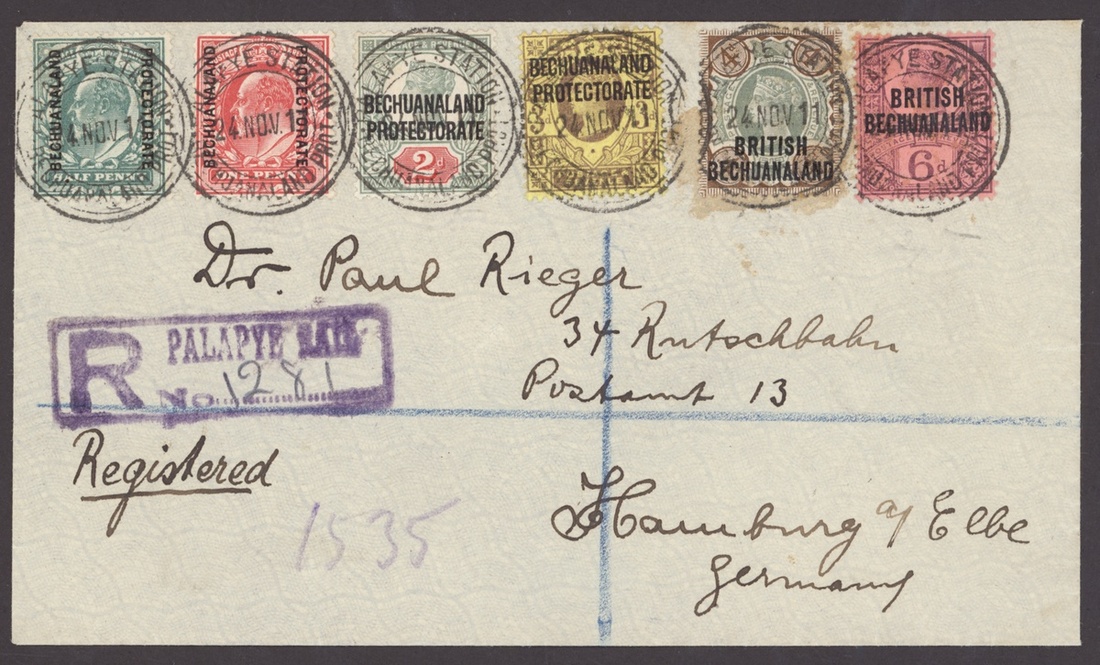 BECHUANALAND PROTECTORATE
HALF PENNY
BECHUANALAND PROTECTORATE
ONE PENNY
BECHUANALAND
PROTECTORATE
2d
BECHUANALAND
PROTECTORATE
3d 3d
4d
BRITISH
BECHUANALAND
BRITISH
BECHUANALAND
6d
PALAPYE STATION
24 NOV. 11
Dr. Paul Rieger
34 Rutschbahn
Postamt 13
R PALAPYE
No 1281
Registered
1535
Hamburg a/ Elbe
Germany